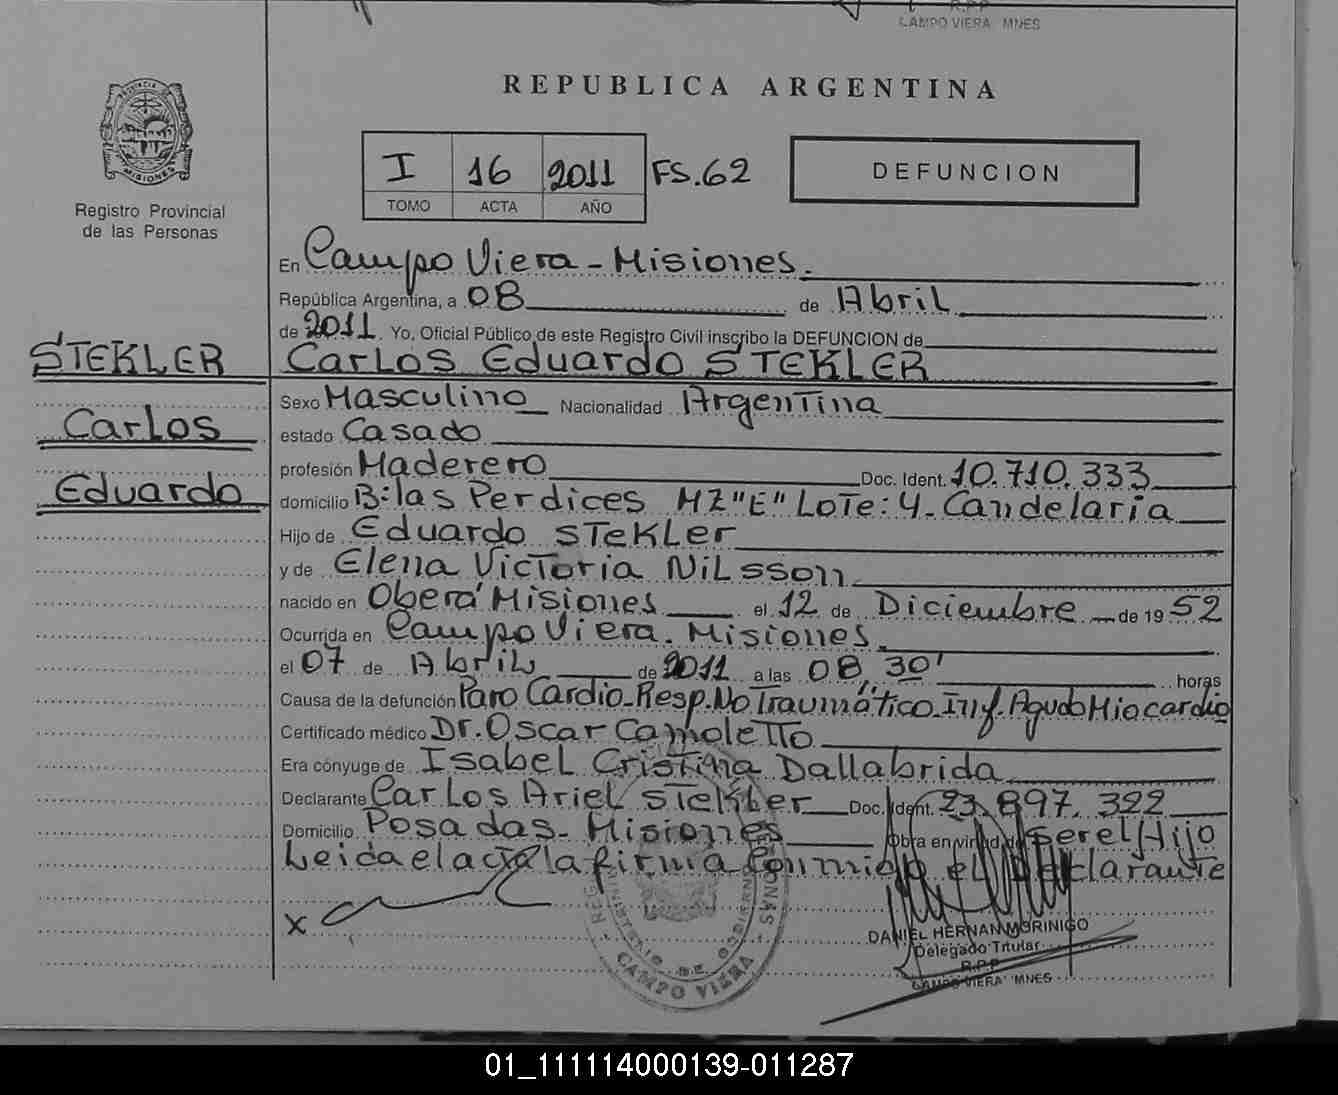 R.P.P
CAMPO VIERA MNES
REPUBLICA ARGENTINA
PROVINCIA DE
MISIONES
Registro Provincial
de las Personas
I 16 2011 FS.62
TOMO ACTA AÑO
DEFUNCION
En Campo Viera - Misiones.
República Argentina, a 08 de Abril
de 2011. Yo, Oficial Público de este Registro Civil inscribo la DEFUNCION de
STEKLER
Carlos
Eduardo
Carlos Eduardo STEKLER
Sexo Masculino Nacionalidad Argentina
estado Casado
profesión Maderero Doc. Ident. 10.710.333
domicilio B: las Perdices MZ "E" Lote: 4. Candelaria
Hijo de Eduardo STEKLER
y de Elena Victoria Nilsson
nacido en Oberá Misiones el 12 de Diciembre de 1952
Ocurrida en Campo Viera. Misiones
el 07 de Abril de 2011 a las 08,30' horas
Causa de la defunción Paro Cardio-Resp. No Traumático. Inf. Agudo Miocardio
Certificado médico Dr. Oscar Camoletto
Era cónyuge de Isabel Cristina Dallabrida
Declarante Carlos Ariel STEKLER Doc. Ident. 23.897.322
Domicilio Posadas - Misiones Obra en virtud de ser el Hijo
Leida el acta la firma conmigo el Declarante
X
MINISTERIO DE GOBIERNO
CAMPO VIERA
DANIEL HERNAN MORINIGO
Delegado Titular
R.P.P
CAMPO VIERA MNES
01_111114000139-011287